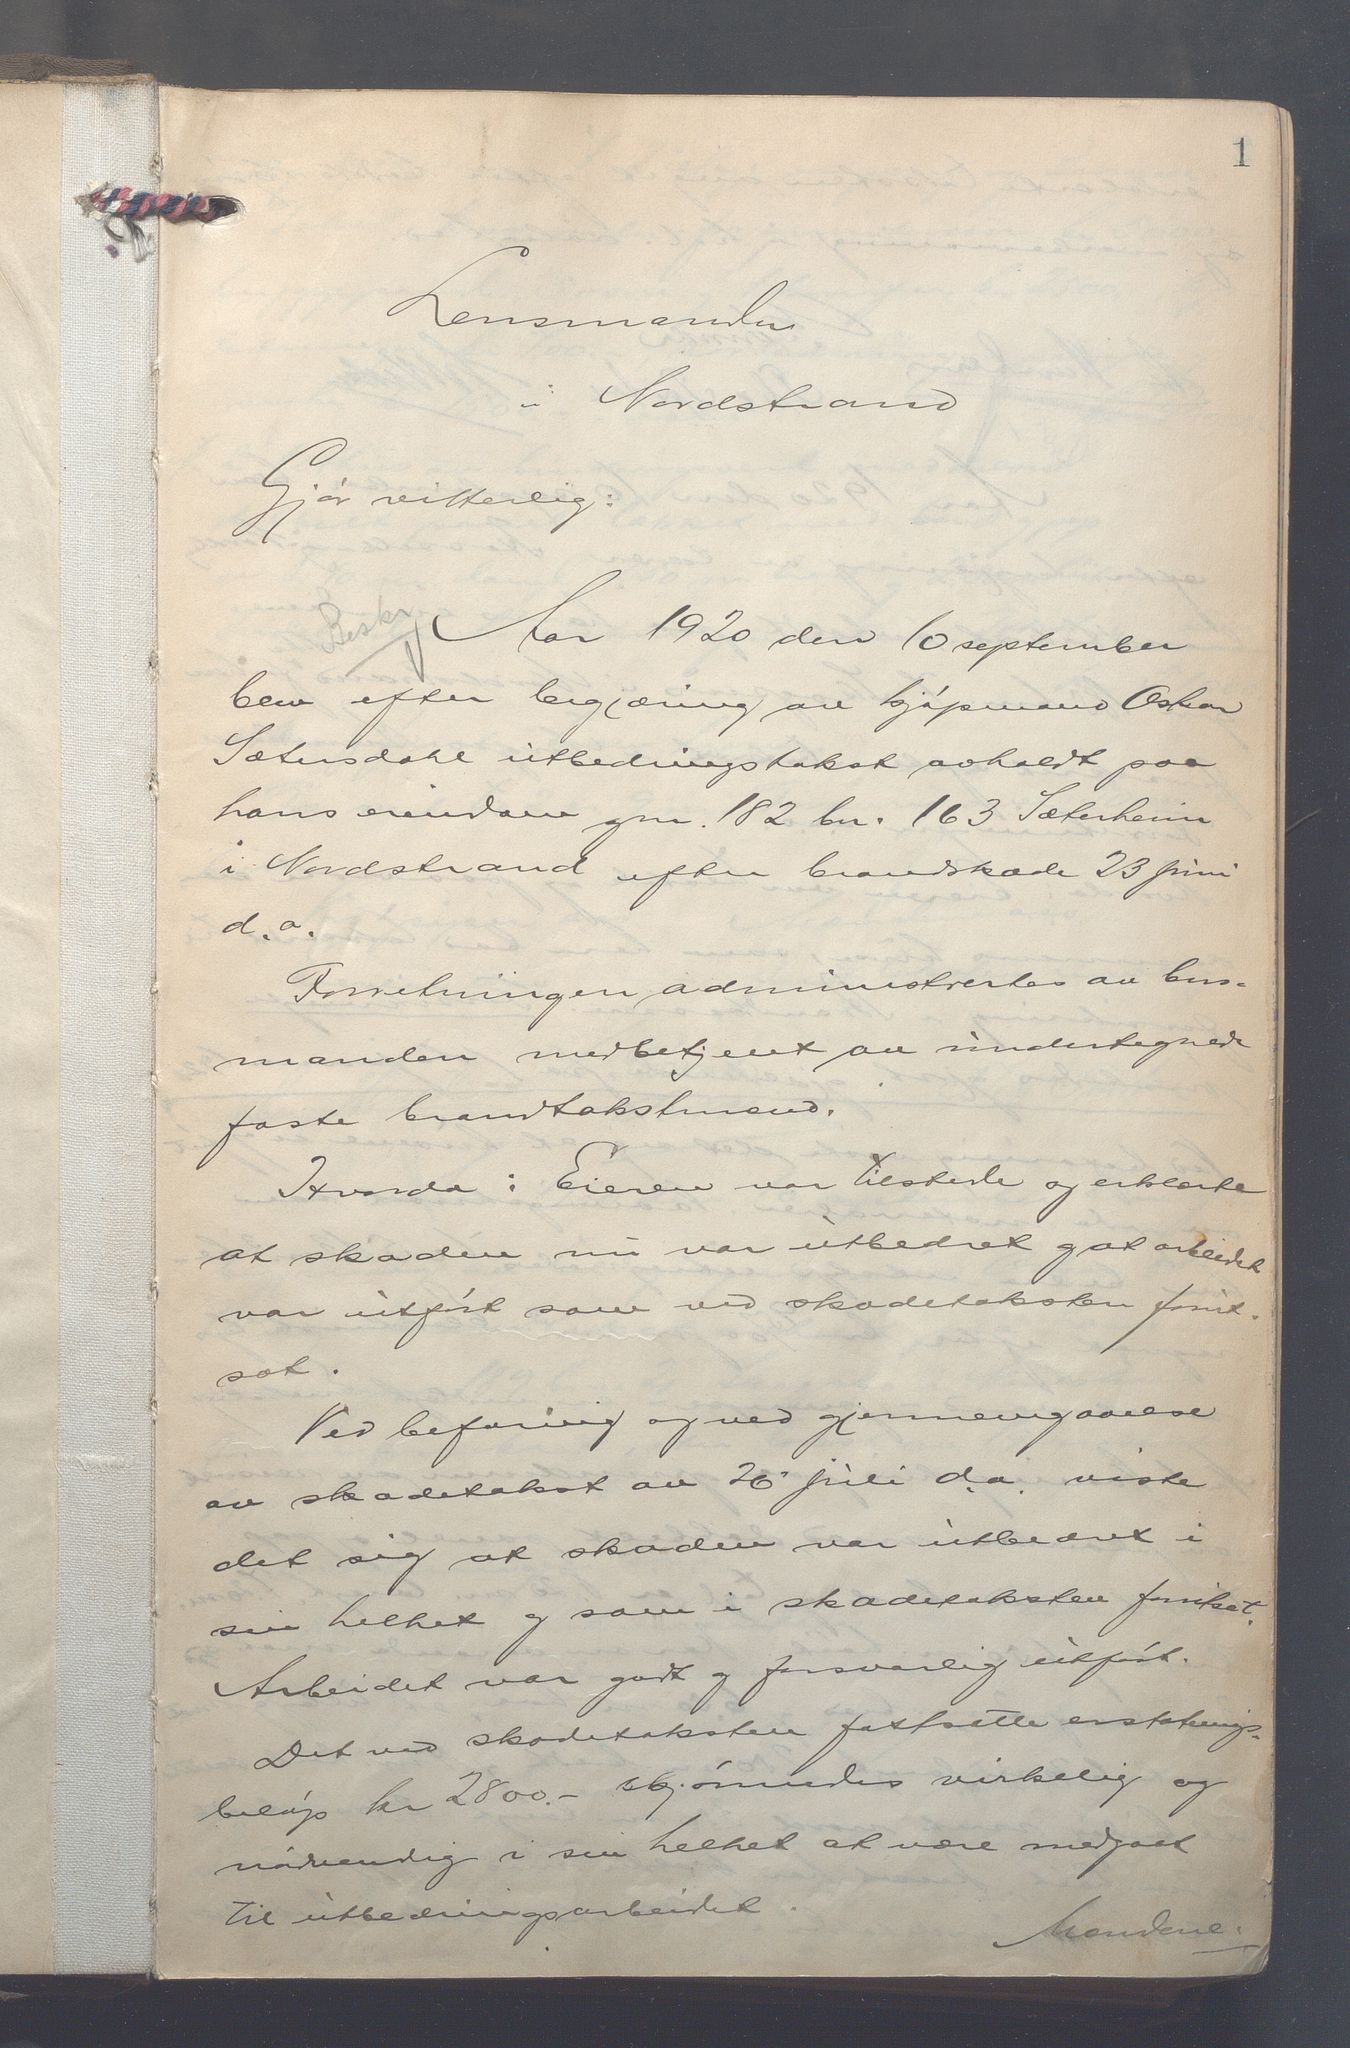 1
Lensmanden
i Nordstrand
Gjör vitterlig:
Beskr
Aar 1920 den 10 september
blev efter begjæring av kjöpmand Oskar
Sætersdahl utbedringstakst avholdt paa
hans eiendom gnr. 182 bn. 163 Sæterheim
i Nordstrand efter brandskade 23 juni
d.a.
Forretningen administrertes av lens-
manden medbetjent av undertegnede
faste brandtakstmænd.
Hvorda: Eieren var tilstede og erklærte
at skaden nu var utbedret og at arbeidet
var utfört som ved skadetaksten forut-
sat.
Ved befaring og ved gjennemgaaelse
av skadetakst av 26 juli d.a. viste
det sig at skaden var utbedret i
sin helhet og som i skadetaksten forutsat.
Arbeidet var godt og forsvarlig utfört.
Det ved skadetaksten fastsatte erstatnings-
belöp kr 2800.- skjönnedes virkelig og
nödvendig i sin helhet at være medgaat
til utbedringsarbeidet.
Mændene: